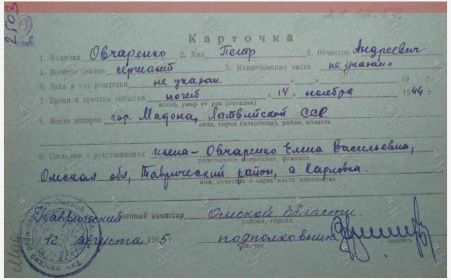 2503
Карточка
1. Фамилия Овчаренко 2. Имя Петр 3. Отчество Андреевич
4. Воинское звание сержант 5. Наименование части не указано
6. Дата и год рождения не указан. 19 г.
7. Время и причина события погиб 14 ноября 1944 г.
погиб, умер от ран (болезни)
8. Место похорон гор. Мадона, Латвийской ССР
село, город (кладбище), район, область
9. Сведения о родственниках жена - Овчаренко Елена Васильевна,
Омская обл, Таврический район, с Карповка.
Таврический военный комиссар Омской области
района, города
12 августа 1965 подполковник
подпись